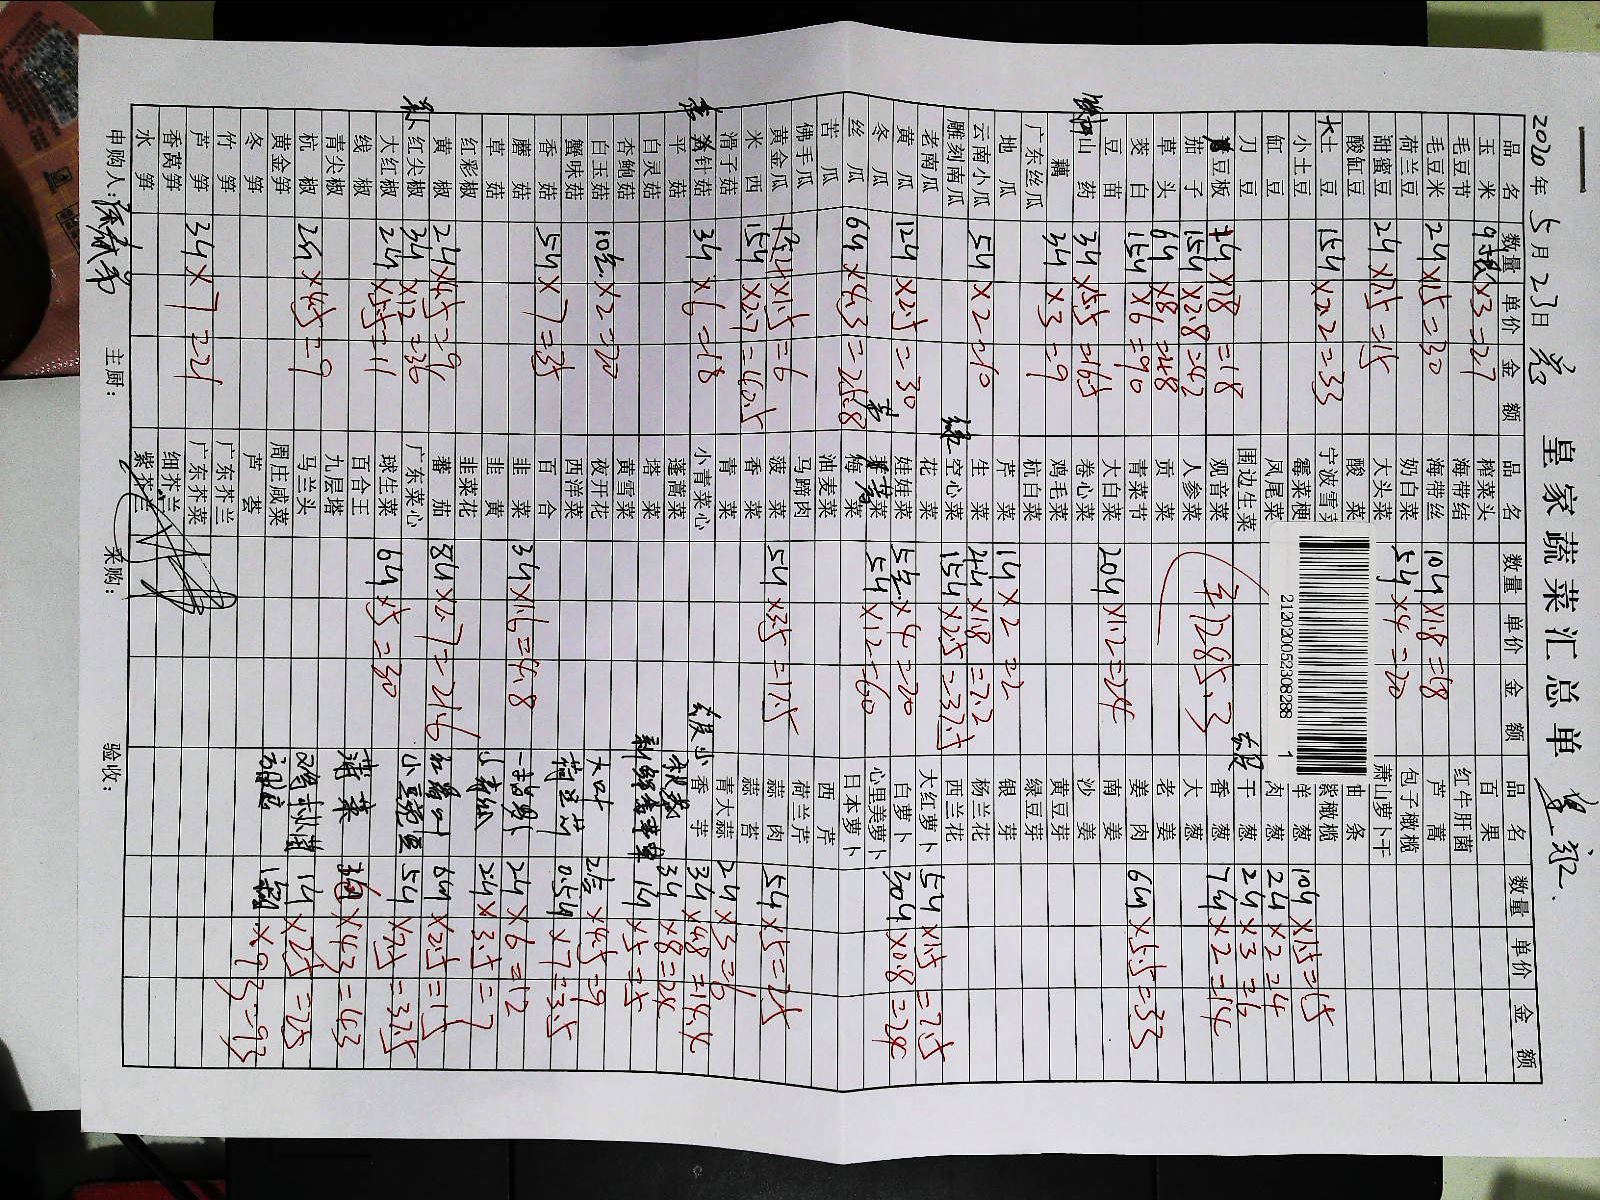 皇家蔬菜汇总单
2020年5月23日
品名 数量 单价 金额 品名 数量 单价 金额 品名 数量 单价 金额
玉米 9根×3=27 榨菜头 百果
毛豆节 海带结 红牛肝菌
毛豆米 2斤×15=30 海带丝 10斤×1.8=18 芦蒿
荷兰豆 奶白菜 5斤×4=20 包子橄榄
甜蜜豆 2斤×7.5=15 大头菜 萧山萝卜干
酸缸豆 酸菜 油条
大土豆 15斤×2.2=33 宁波雪菜 紫橄榄
小土豆 霉菜梗 洋葱 10斤×1.5=15
缸豆 凤尾菜 肉葱 2斤×2=4
刀豆 围边生菜 干葱 2斤×3=6
豆板 1斤×18=18 观音菜 香葱 7斤×2=14
茄子 15斤×2.8=42 人参菜 大葱
草头 6斤×8=48 贡菜 老姜
茭白 15斤×6=90 青菜节 姜肉 6斤×5.5=33
豆苗 大白菜 20斤×1.2=24 南姜
山药 3斤×5.5=16.5 卷心菜 沙姜
藕 3斤×3=9 鸡毛菜 黄豆芽
广东丝瓜 杭白菜 绿豆芽
地瓜 芹菜 1斤×2=2 银芽
云南小瓜 5斤×2=10 生菜 4斤×1.8=7.2 杨兰花
雕刻南瓜 空心菜 15斤×2.5=37.5 西兰花
老南瓜 花菜 大红萝卜 5斤×1.5=7.5
黄瓜 12斤×2.5=30 娃娃菜 5包×4=20 白萝卜 30斤×0.8=24
冬瓜 5斤×12=60 心里美萝卜
丝瓜 6斤×4.3=25.8 梅菜 日本萝卜
苦瓜 油麦菜 西芹
佛手瓜 马蹄肉 荷兰芹
黄金瓜 ×1.5=6 菠菜 5斤×3.5=17.5 蒜肉 5斤×5=25
米西 15斤×2.7=40.5 香菜 蒜苔
滑子菇 青菜 青大蒜 2斤×3=6
金针菇 3斤×6=18 小青菜心 去皮小香芋 3斤×4.8=14.4
平菇 蓬蒿菜 3斤×8=24
白灵菇 塔菜 1斤×5=5
杏鲍菇 黄雪菜
白玉菇 10包×2=20 夜开花 大叶 2包×4.5=9
蟹味菇 西洋菜 荷兰芹 0.5斤×7=3.5
香菇 5斤×7=35 百合
蘑菇 韭菜 3斤×1.6=4.8 2斤×6=12
草菇 韭黄 小青瓜 2斤×3.5=7
红彩椒 韭菜花
黄椒 2斤×4.5=9 蕃茄 8斤×2.7=21.6 6斤×2.5=15
红尖椒 3斤×12=36 广东菜心 小豌豆 5斤×7.5=37.5
大红椒 2斤×5.5=11 球生菜 6斤×5=30
线椒 百合王 蒲菜 ×43=43
青尖椒 九层塔
杭椒 2斤×4.5=9 马兰头 鸡枞菌 1斤×25=25
黄金笋 周庄咸菜 ×93=93
冬笋 芦荟
竹笋 广东芥兰
芦笋 3斤×7=21 广东芥菜
香莴笋 细芥兰
水笋 紫芥兰
212020052308288 1
1285.3
申购人: 主厨: 采购: 验收: